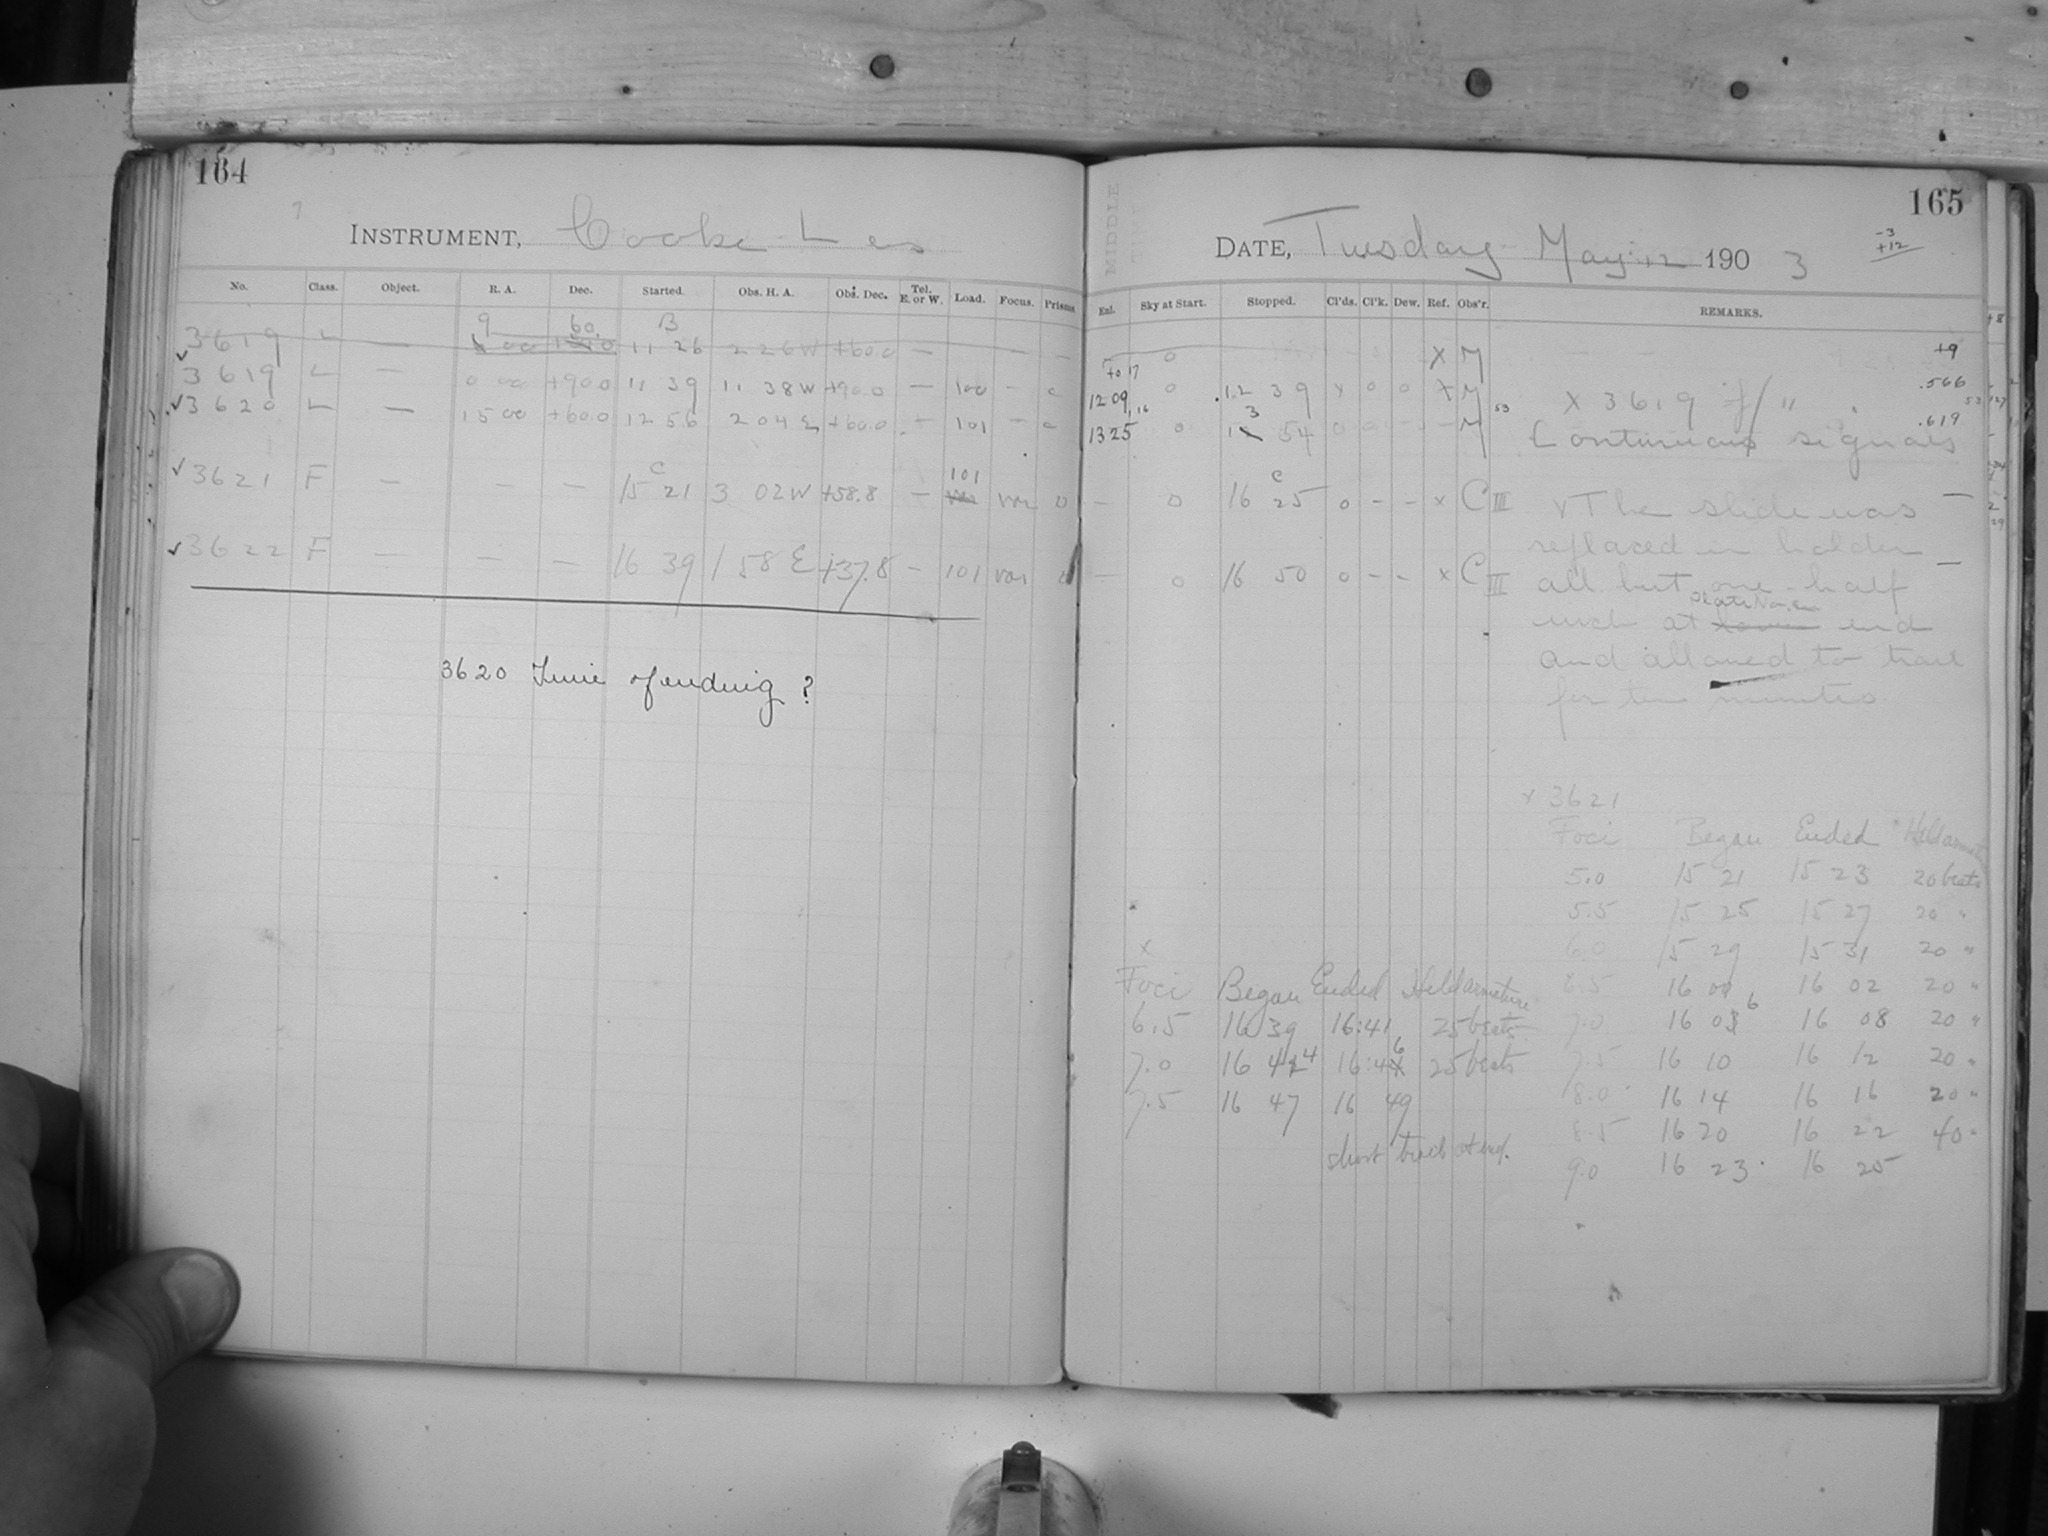 164
INSTRUMENT, Cooke Lens
No. Class. Object. R. A. Dec. Started. Obs. H. A. Obs. Dec. Tel. E. or W. Load. Focus. Prisms
9 60 B
3619 L — 11 26 2 26 W +60.0 — —
3619 L — 0 00 +90.0 11 39 11 38 W +90.0 — 100 — 0
3620 L — 15 00 +60.0 12 56 2 04 E +60.0 — 101 — 0
C 101
3621 F — — — 15 21 3 02 W +58.8 — var 0
3622 F — — — 16 39 1 58 E +37.8 — 101 var 0
3620 Time of ending ?
165
MIDDLE
DATE, Tuesday May 12 1903
-3
+12
Enl. Sky at Start. Stopped. Cl'ds. Cl'k. Dew. Ref. Obs'r. REMARKS.
0 X M +9
to 17
1209 0 12 39 x 0 0 X M X 3619 if / " .566
, 16 3 53 53
1325 0 54 0 — M Continuous signals .619
C
— 0 16 25 0 - - x C III x The slide was —
replaced in holder
— 0 16 50 0 - - x C III all but one-half —
inch at end
and allowed to trail
for ten minutes
x 3621
Foci Began Ended Held armature
5.0 15 21 15 23 20 beats
5.5 15 25 15 27 20 "
6.0 15 29 15 31 20 "
6.5 16 00 16 02 20 "
7.0 16 06 16 08 20 "
7.5 16 10 16 12 20 "
8.0 16 14 16 16 20 "
8.5 16 20 16 22 40 "
9.0 16 23 16 25
x
Foci Began Ended Held armature
6.5 16 39 16:41 25 beats
7.0 16 44 16:46 25 beats
7.5 16 47 16 49
short trails at end.